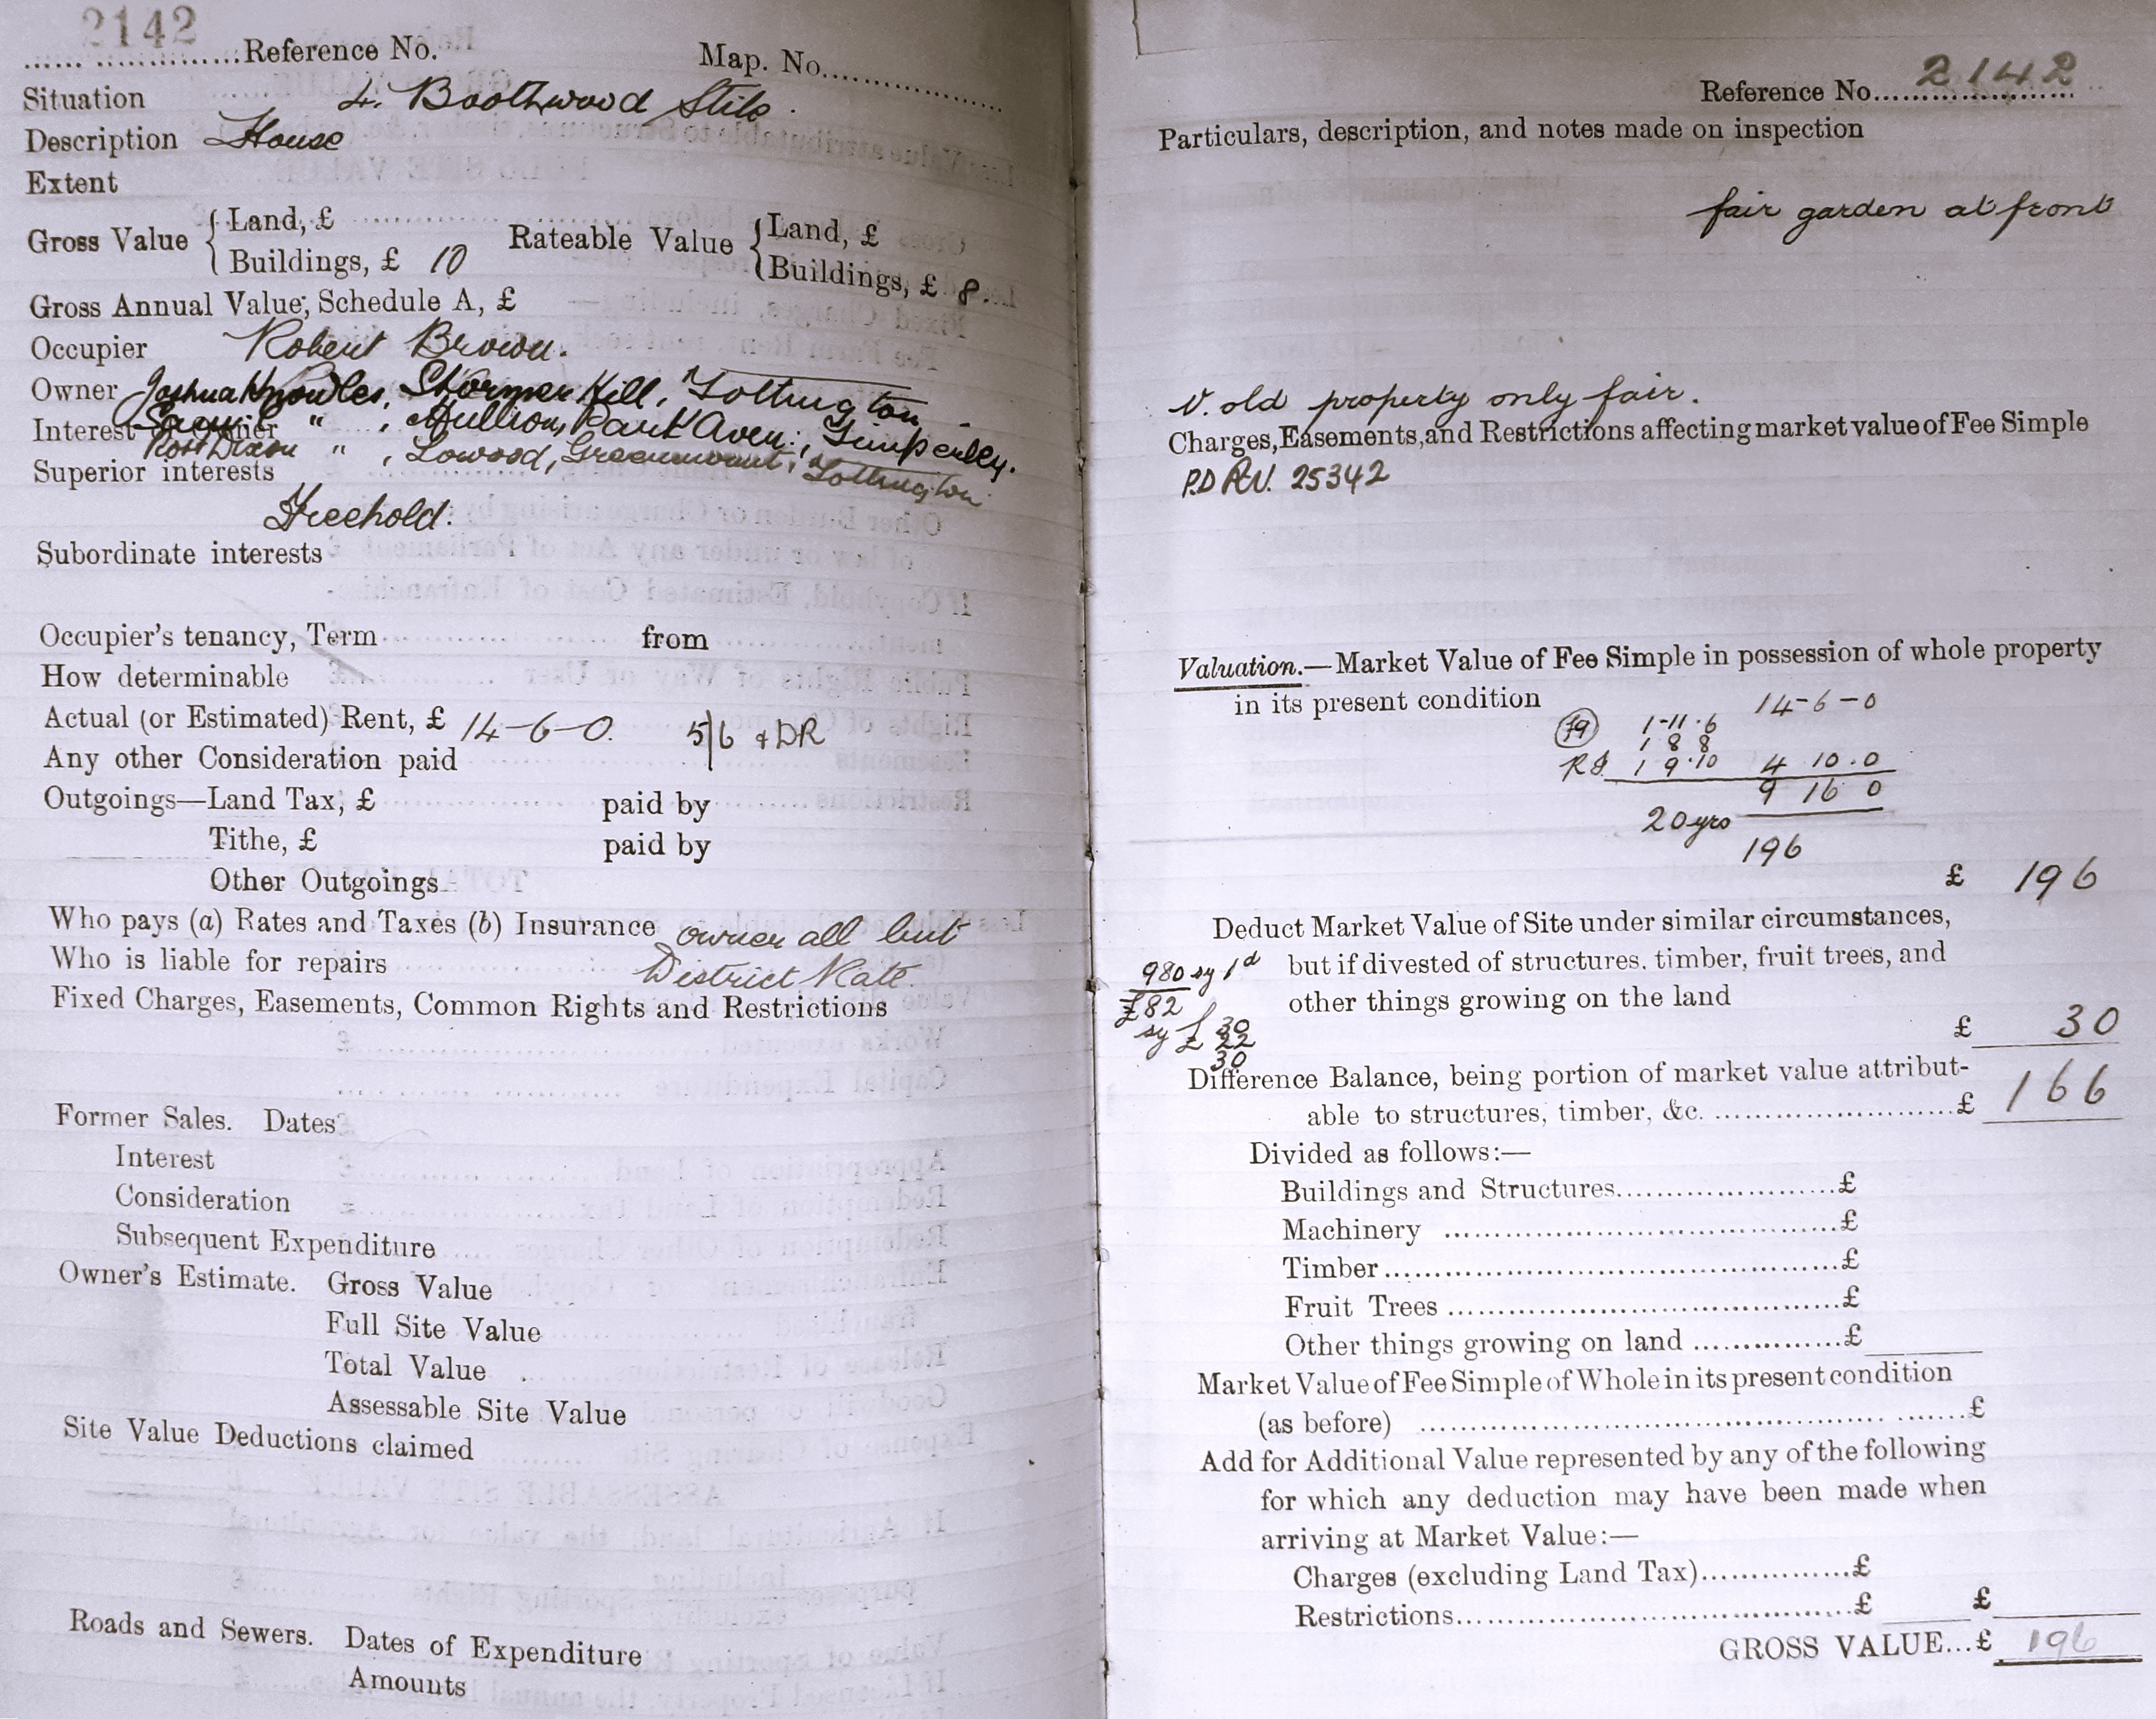 2142
Reference No. Map. No.
Situation 4. Boothwood Stile.
Description House
Extent
Gross Value { Land, £ Rateable Value { Land, £
Buildings, £ 10 Buildings, £ 8.
Gross Annual Value, Schedule A, £
Occupier Robert Brown.
Owner Joshua Knowles, Stormer Hill, Tottington
Interest of Owner " , Mullion, Park Aven: , Timperley.
Ross Dixon " , Lowood, Greenmount, Tottington
Superior interests
Freehold.
Subordinate interests
Occupier's tenancy, Term from
How determinable
Actual (or Estimated) Rent, £ 14-6-0. 5/6 + DR
Any other Consideration paid
Outgoings—Land Tax, £ paid by
Tithe, £ paid by
Other Outgoings
Who pays (a) Rates and Taxes (b) Insurance owner all but
Who is liable for repairs District Rate.
Fixed Charges, Easements, Common Rights and Restrictions
Former Sales. Dates
Interest
Consideration
Subsequent Expenditure
Owner's Estimate. Gross Value
Full Site Value
Total Value
Assessable Site Value
Site Value Deductions claimed
Roads and Sewers. Dates of Expenditure
Amounts
Reference No. 2142
Particulars, description, and notes made on inspection
fair garden at front
V. old property only fair.
Charges, Easements, and Restrictions affecting market value of Fee Simple
P.D 25342
Valuation.—Market Value of Fee Simple in possession of whole property
in its present condition 14-6-0
1-11.6
1 8 8
1 9.10 4 10.0
9 16 0
20 yrs
196
£ 196
Deduct Market Value of Site under similar circumstances,
980 sy 1d but if divested of structures, timber, fruit trees, and
£82 other things growing on the land
sy £ 30
22
30
£ 30
Difference Balance, being portion of market value attribut-
able to structures, timber, &c. £ 166
Divided as follows:—
Buildings and Structures £
Machinery £
Timber £
Fruit Trees £
Other things growing on land £
Market Value of Fee Simple of Whole in its present condition
(as before) £
Add for Additional Value represented by any of the following
for which any deduction may have been made when
arriving at Market Value:—
Charges (excluding Land Tax) £
Restrictions £ £
GROSS VALUE...£ 196